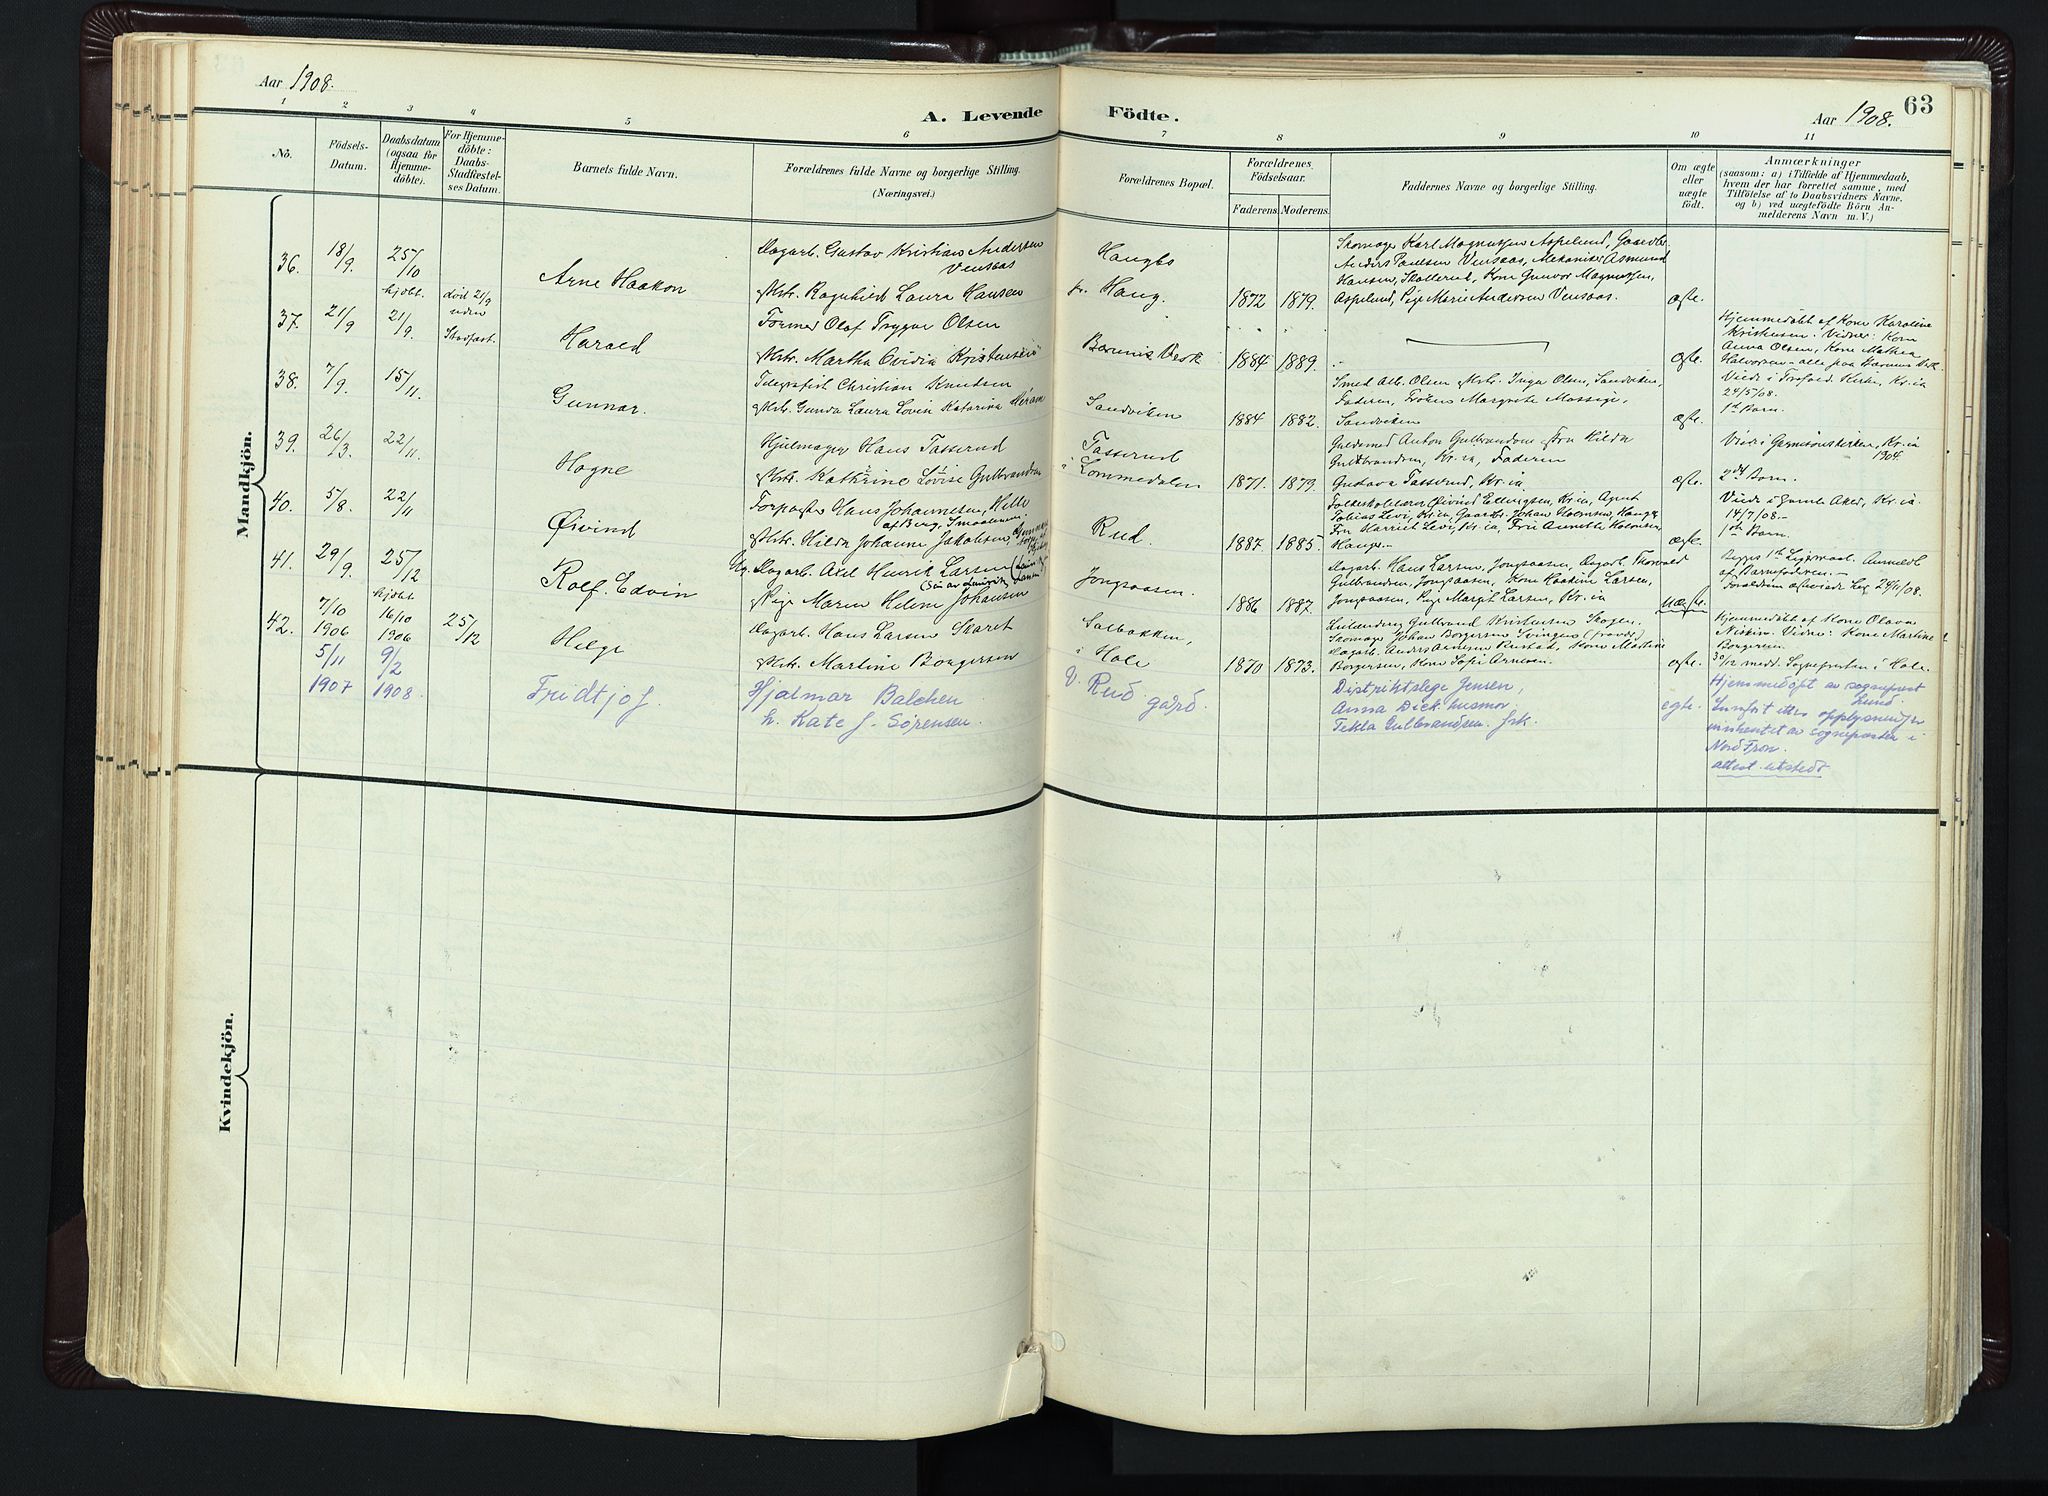 Aar 1908.
A. Levende Födte.
Aar 1908.
63
1 2 3 4 5 6 7 8 9 10 11
No.
Födsels-Datum.
Daabsdatum (ogsaa for Hjemme-döbte).
For Hjemme-döbte: Daabs-Stadfæstel-ses Datum.
Barnets fulde Navn.
Forældrenes fulde Navne og borgerlige Stilling.
(Næringsvei.)
Forældrenes Bopæl.
Forældrenes Födselsaar.
Faderens. Moderens.
Faddernes Navne og borgerlige Stilling.
Om ægte eller uægte födt.
Anmærkninger
(saasom: a) i Tilfælde af Hjemmedaab,
hvem der har forrettet samme, med
Tilföielse af to Daabsvidners Navne,
og b) ved uægtefödte Börn An-
melderens Navn m. V.)
Mandkjön.
36. 18/9. 25/10
Arne Haakon
Dagarb. Gustav Kristian Andersen
Vensaas
Hstr. Ragnhild Laura Hansen
Haugbs
pr. Haug.
1872 1879.
Skomager Karl Magnussen Aspelund, Gaardbr.
Anders Paulsen Vensaas, Mekaniker Asmund
Hansen, Skollerud, Kone Gunvor Magnussen,
Aspelund, Pige Marie Andersen Vensaas.
ægte.
37. 21/9 hjdbt. 21/9. død 21/9 uden Stadfæst.
Harald
Former Olaf Trygve Olsen
Hstr. Martha Ovidia Kristensen
Bærums Værk
1884 1889.
ægte.
Hjemmedøbt af Kone Karoline
Kristensen. Vidner: Kone
Anna Olsen, Kone Mathea
Halvorsen - alle paa Bærums Værk.
38. 7/9. 15/11.
Gunnar.
Telegrafist Christian Knudsen
Hstr. Gunda Laura Lovise Katarina
Sandviken
1884 1882.
Smed Alb. Olsen Hstr. Inga Olsen, Sandviken,
Faderen, Frøken Margrete
Sandviken
ægte.
Viede i Trefold. Kirke, Kr.ia
24/5/08.
1ste Barn.
39. 26/3. 22/11.
Hogne
Hjulmager Hans Tasserud
Hstr. Kathrine Lovise Gulbrandsen
Tasserud
i Lommedalen
1871. 1879.
Guldsmed Anton Gulbrandsen Fru Hilda
Gulbrandsen, Kr.ia, Faderen
Gustava Tasserud, Kr.ia
ægte.
Viede i Garnisonskirken, Kr.ia
1904.
2det Barn.
40. 5/8. 22/11
Øivind
Forpagter Hans Johannesen Helle
af Berg, Smaalenene
Hstr. Hilda Johanne Jakobsen,
Rud.
1887 1885.
Folkeskolelærer Øivind Ellingsen, Kr.ia, Agent
Tobias Levi, Kr.ia, Gaardbr. Johan Holmsen, Hauger
Fru Harriet Levi, Kr.ia, Fru Annette Holmsen,
Hauger.
ægte.
Viede i Gamle Aker, Kr.ia.
14/7/08.
1ste Barn.
41. 29/9. 25/12
Rolf Edvin
Ug. Dagarb. Axel Henrik Larsen
Pige Maren Helene Johansen
Jongsaasen.
1886 1887.
Dagarb. Hans Larsen, Jongsaasen, Dagarb. Thorvald
Gulbrandsen, Jongsaasen, Kone Larsen,
Jongsaasen, Pige Margit Larsen, Kr.ia
uægte.
Begges 1ste Leiermaal. Anmeldt
af Barnefaderen.
24/11/08.
42. 7/10 1906 hjdbt 16/10 1906 25/12
Helge
Dagarb. Hans Larsen Skaret
Hstr. Martine Borgersen
Solbakken,
i Hole
1870 1873.
Gulbrand Kristensen Skogen.
Skomager Johan Borgersen Svingen
Dagarb. Anders Arnesen Rustad, Kone Martine
Borgersen, Kone Sofie Arnesen.
ægte.
Hjemmedøbt af Kone Olava
Vidner: Kone Martine
Borgersen
30/12 medt. Sognepresten i Hole.
5/11 1907 9/2 1908.
Fridtjof
Hjalmar Balchen
h. Kate J. Sørensen.
v. Rud gård.
Distriktslege Jensen,
Anna Dick husmor
Tekla Gulbrandsen. frk.
egte.
Hjemmedøpt av sogneprest
Lund.
Innført etter opplysninger
innhentet av sognepresten i
Nord Fron.
attest utstedt
Kvindekjön.